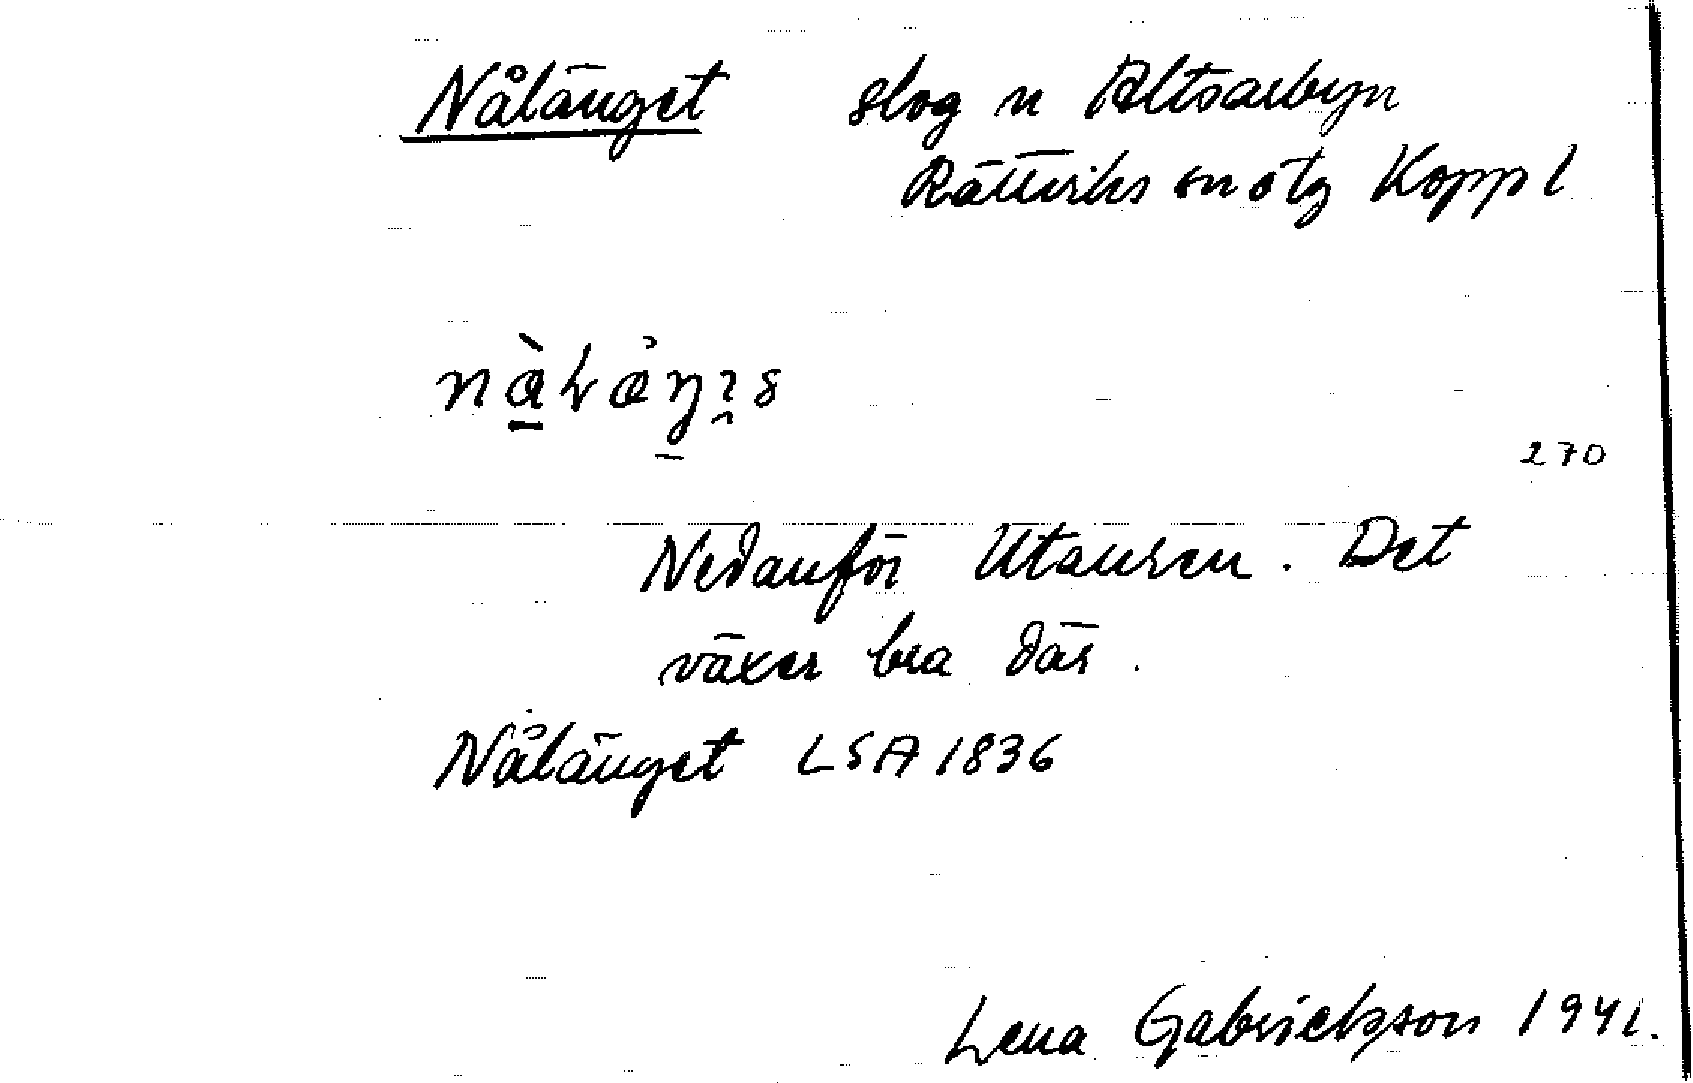 Nålänget slog n Altsarbyn
Rättviks sn ötg Koppl
270
Nedanför Utansen. Det
växer bra där.
Nålänget LSA 1836
Lena Gabrielsson 1941.